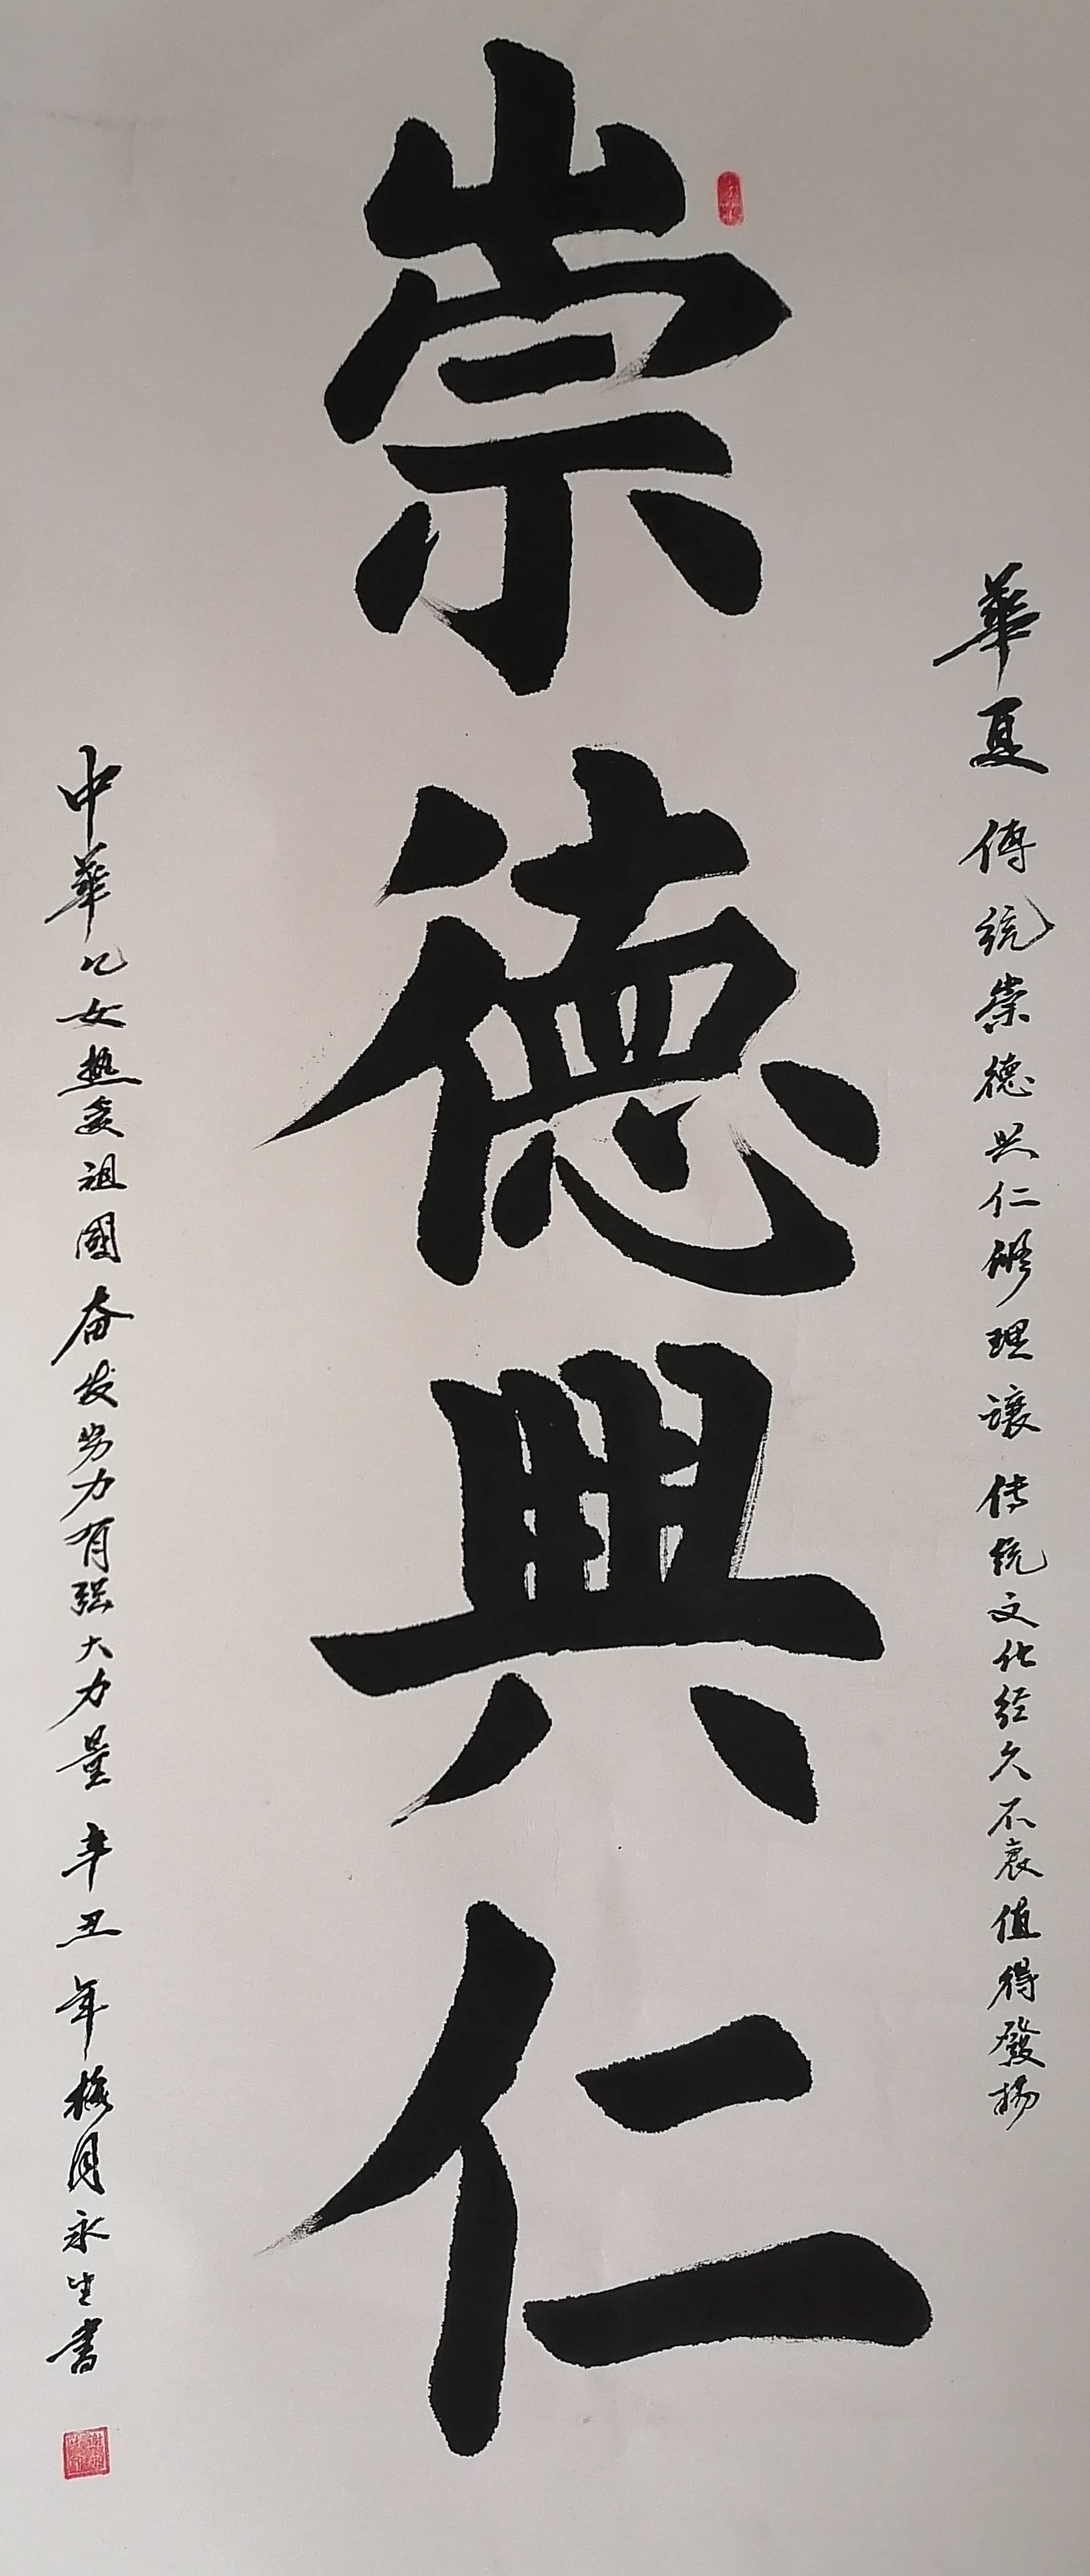 華夏傳統崇德兴仁修理讓传统文化经久不衰值得發扬
崇德興仁
中華儿女热爱祖國奋发努力有强大力量辛丑年梅月永生書